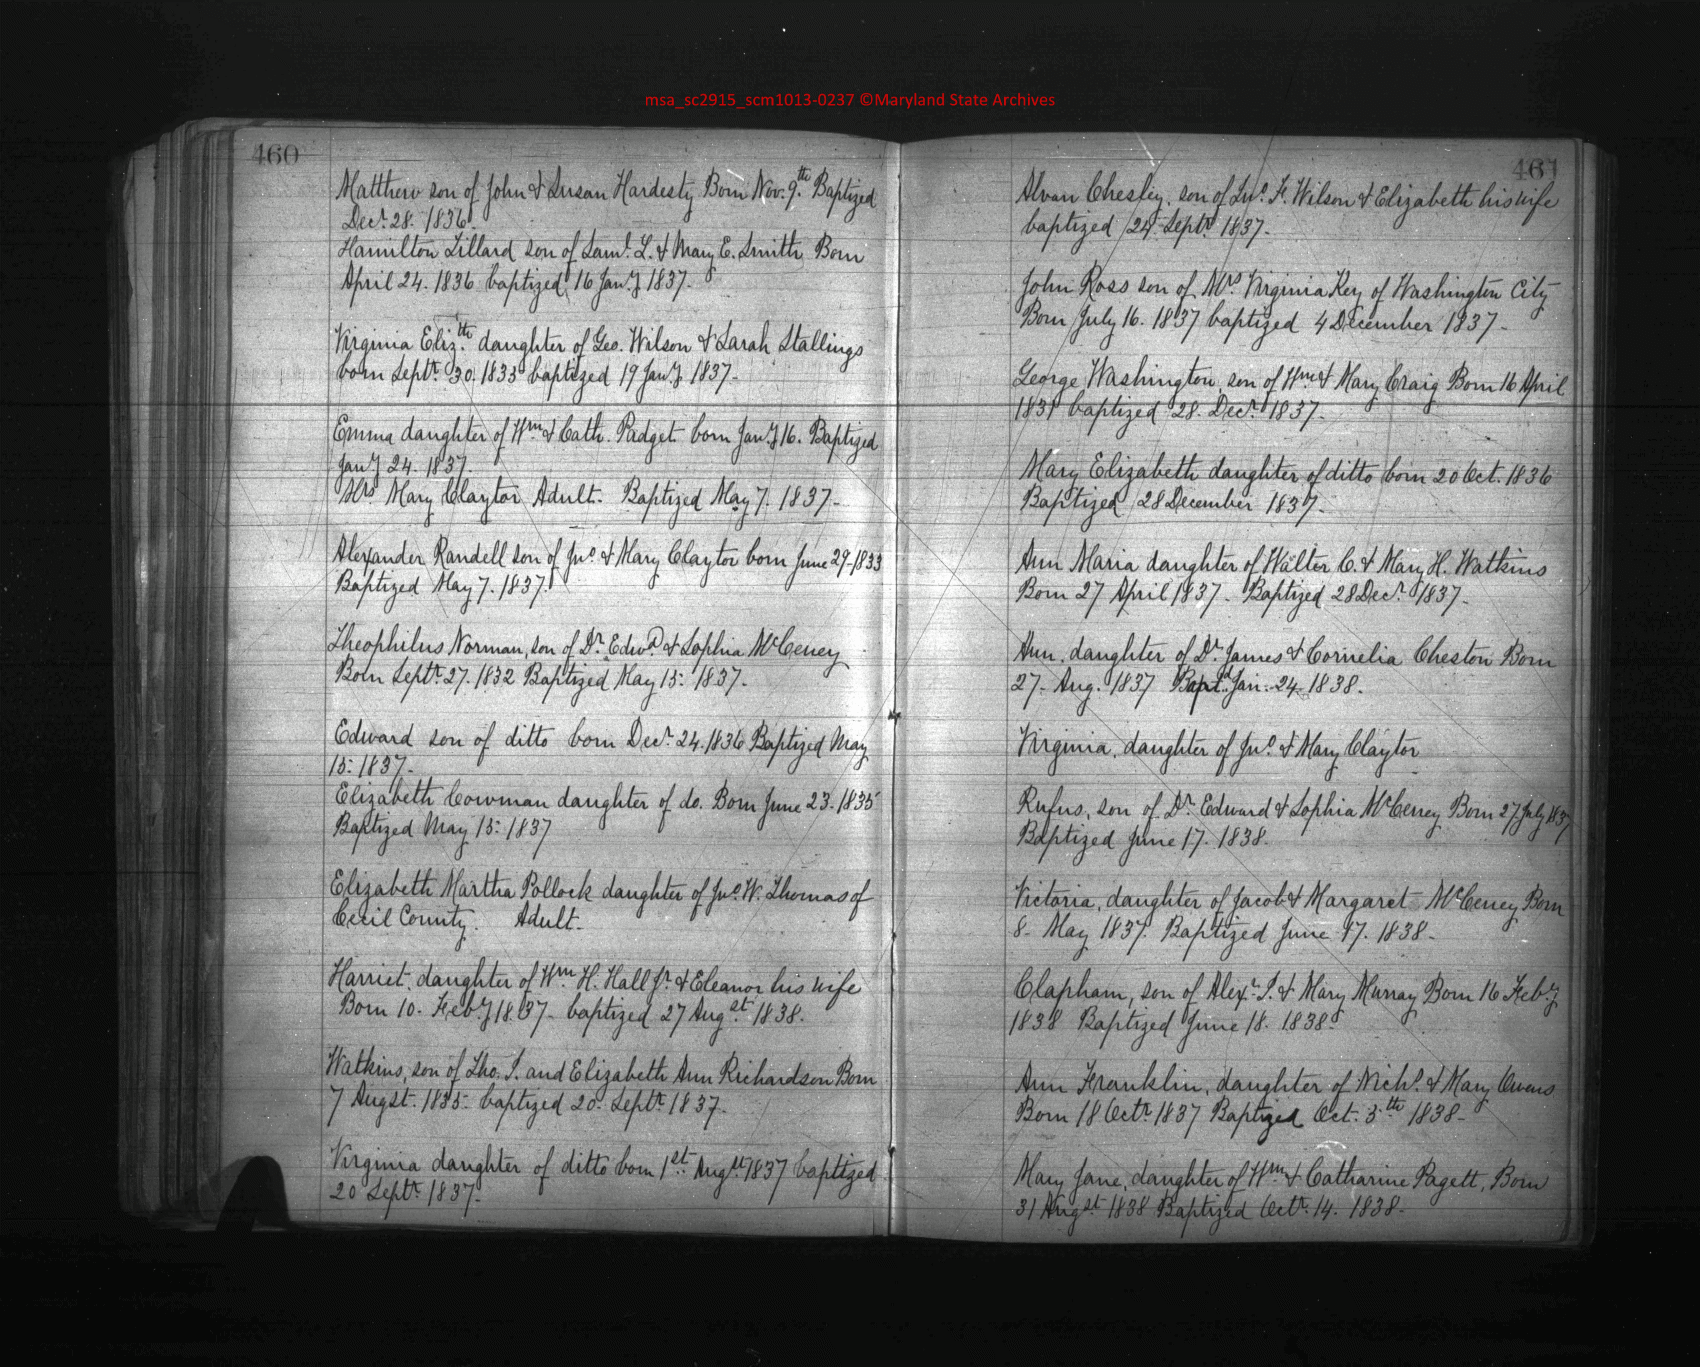 msa_sc2915_scm1013-0237 ©Maryland State Archives
460
Matthew son of John & Susan Hardesty Born Nov. 9th. Baptized
Decr. 28. 1836.
Hamilton Lillard son of Saml. L. & Mary E. Smith Born
April 24. 1836 baptized 16 Jany 1837.
Virginia Elizth. daughter of Geo. Wilson & Sarah Stallings
born Septr. 30. 1835 baptized 19 Jany 1837.
Emma daughter of Wm & Cath. Padget born Jany 16. Baptized
Jany 24. 1837.
Mrs Mary Claytor Adult. Baptized May 7. 1837.
Alexander Randell son of Jno. & Mary Claytor born June 29-1833
Baptized May 7. 1837.
Theophilus Norman, son of Dr. Edwd. & Sophia McCeney
Born Septr. 27. 1832 Baptized May 15: 1837.
Edward son of ditto born Decr. 24. 1836 Baptized May
15: 1837.
Elizabeth Cowman daughter of do. Born June 23. 1835
Baptized May 15: 1837
Elizabeth Martha Pollock daughter of Jno. W. Thomas of
Cecil County. Adult.
Harriet, daughter of Wm H. Hall Jr. & Eleanor his wife
Born 10. Feby 1837. baptized 27 Augst. 1838.
Watkins, son of Tho. J. and Elizabeth Ann Richardson Born
7 Augst. 1835. baptized 20. Septr. 1837.
Virginia daughter of ditto born 1st. Augst 1837 baptized
20 Septr. 1837.
461
Alvan Chesley, son of Jno. F. Wilson & Elizabeth his wife
baptized 24 Septr. 1837.
John Ross son of Mrs Virginia Key of Washington City
Born July 16. 1837 baptized 4 December 1837.
George Washington, son of Wm & Mary Craig Born 16 April
1831 baptized 28. Decr. 1837.
Mary Elizabeth daughter of ditto born 20 Oct. 1836
Baptized 28 December 1837.
Ann Maria daughter of Walter C. & Mary H. Watkins
Born 27 April 1837. Baptized 28 Decr. 1837.
Ann, daughter of Dr. James & Cornelia Cheston Born
27. Aug. 1837 Bapt.d Jan. 24. 1838.
Virginia, daughter of Jno. & Mary Claytor
Rufus, son of Dr. Edward & Sophia McCeney Born 27 July 1837
Baptized June 17. 1838.
Victoria, daughter of Jacob & Margaret McCeney Born
8. May 1837. Baptized June 17. 1838.
Clapham, son of Alexr. S. & Mary Murray Born 16 Feby
1838 Baptized June 18. 1838
Ann Franklin, daughter of Nichs. & Mary Owens
Born 18 Octr. 1837 Baptized Oct. 5th 1838.
Mary Jane, daughter of Wm & Catharine Pagett, Born
31 Augst 1838 Baptized Octr. 14. 1838.